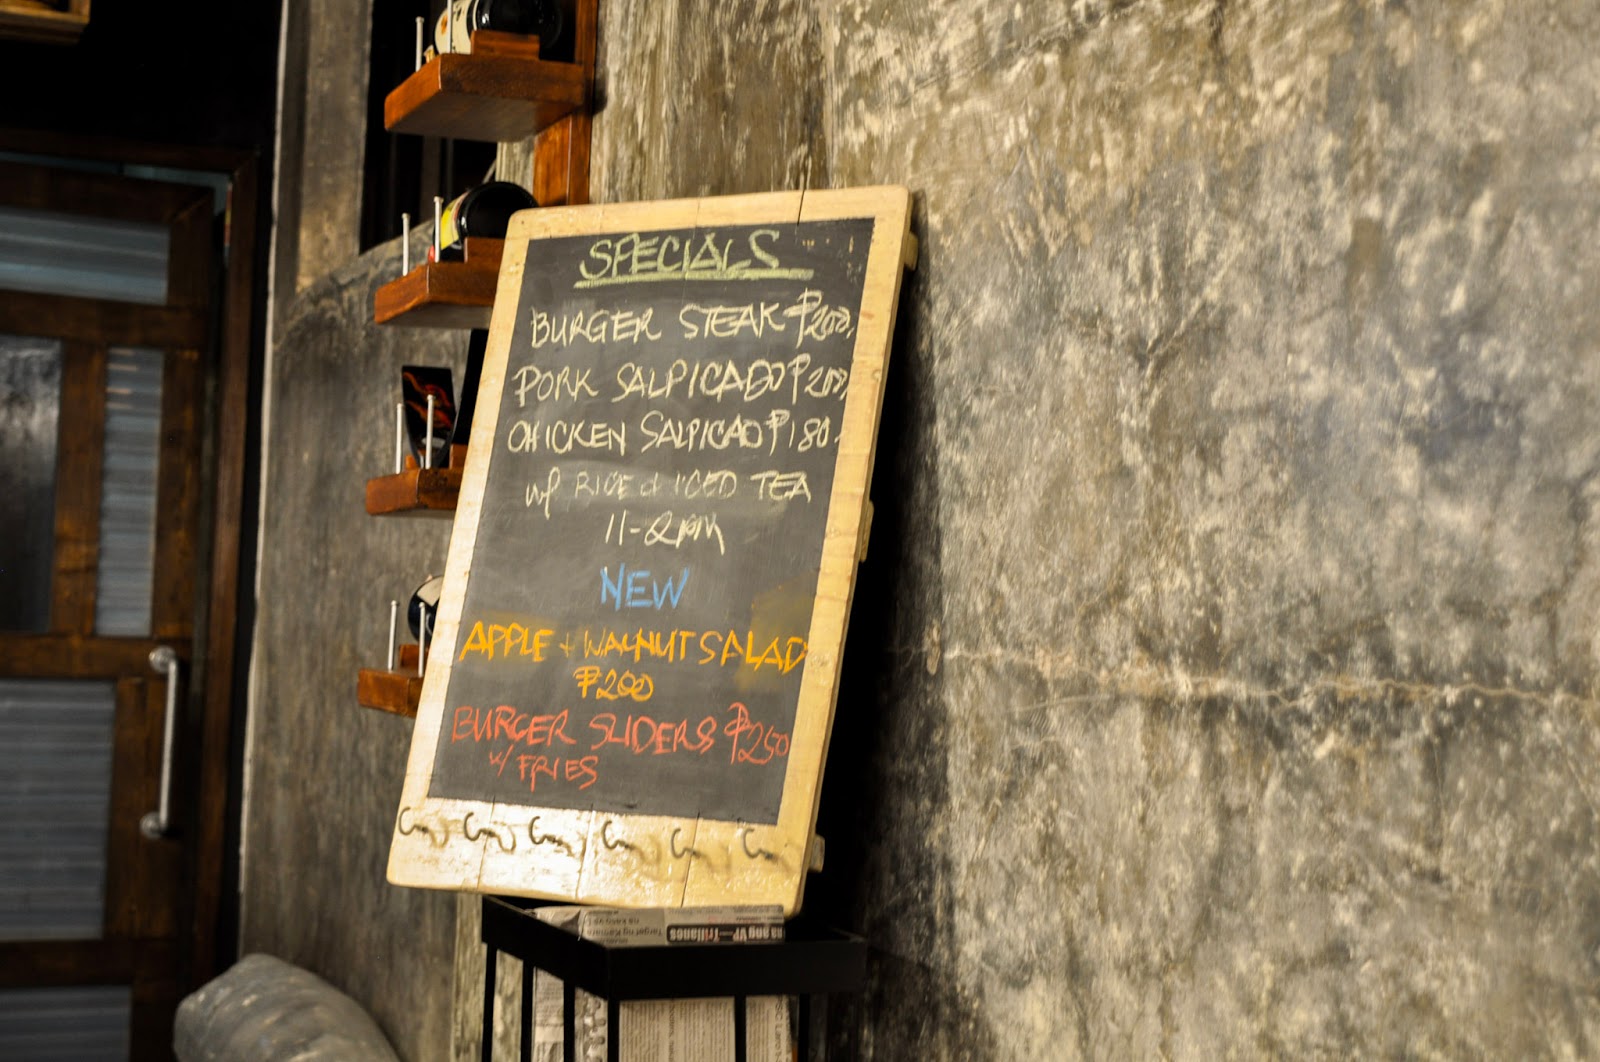 SPECIALS
BURGER STEAK ₱200.
PORK SALPICADO ₱200.
CHICKEN SALPICAO ₱180.
w/ RICE & ICED TEA
11-2PM
NEW
APPLE + WALNUT SALAD
₱200
BURGER SLIDERS ₱250
w/ FRIES
na ang VP Trillanes
Target ng Kamara